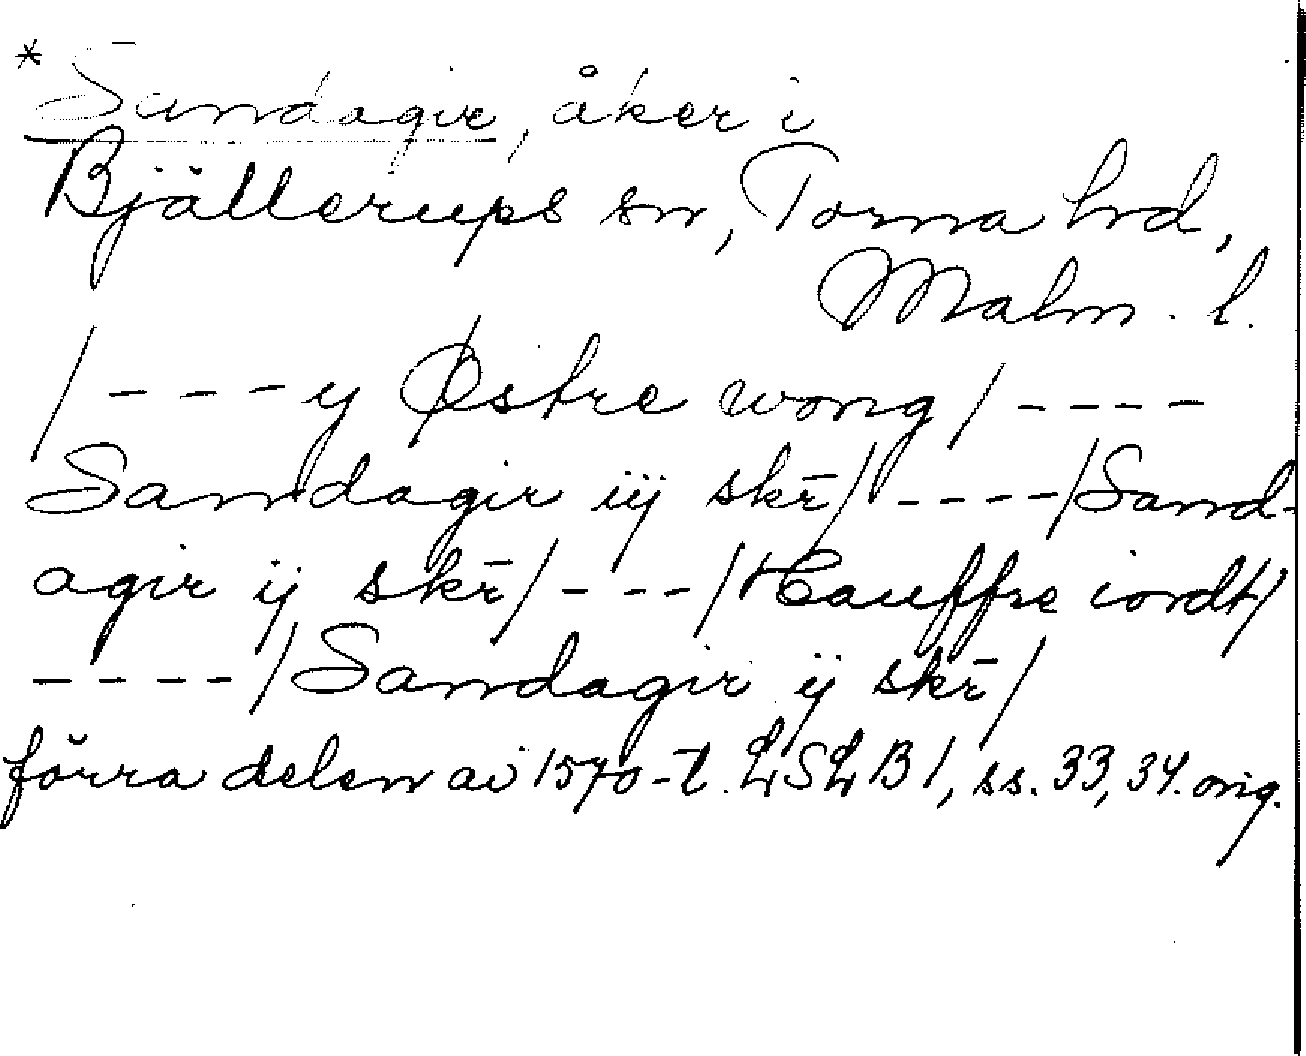 * Sandagir, åker i
Bjällerups sn, Torna hd,
Malm. l.
/ - - - y Østre wong / - - - -
Sandagir iij skr̄ / - - - - / Sand-
agir ij skr̄ / - - - / Hauffre iordt /
- - - - / Sandagir ij skr̄ /
förra delen av 1570-t. LSLB 1, ss. 33, 34. orig.